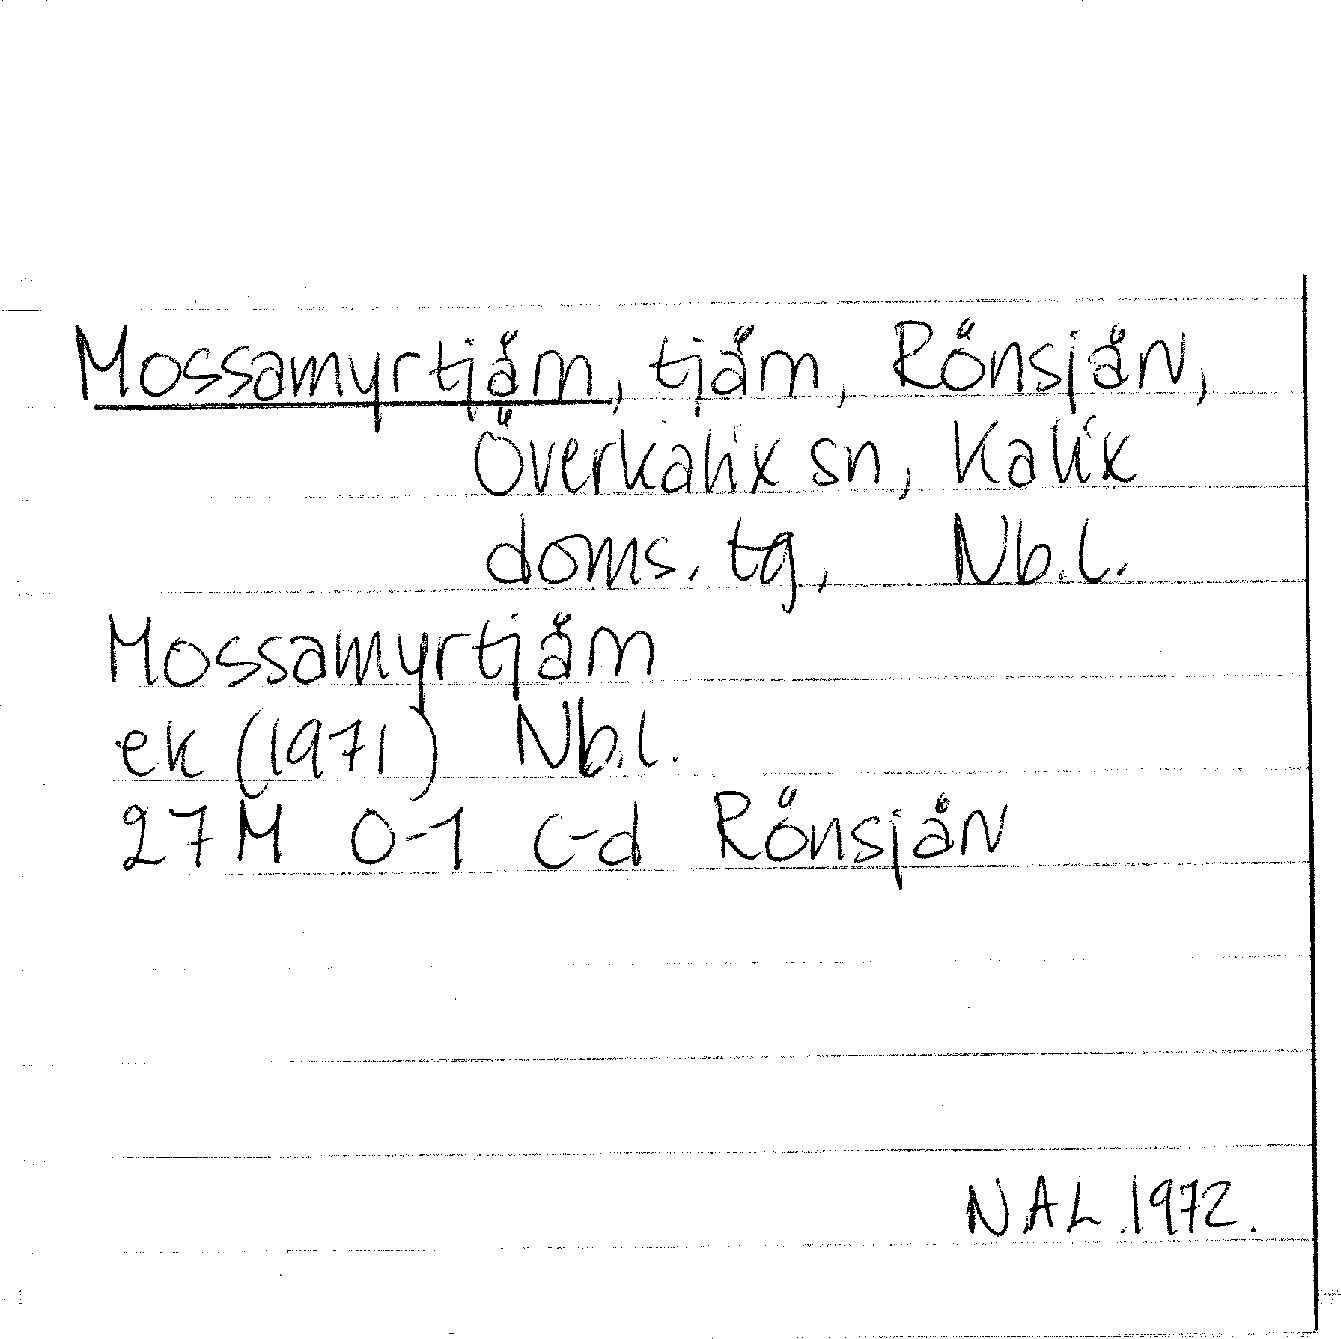 Mossamyrtjärn, tjärn, Rönsjärv,
Överkalix sn, Kalix
doms. tg, Nb.l.
Mossamyrtjärn
ek (1971) Nb.l.
27M 0-1 c-d Rönsjärv
NAL 1972.